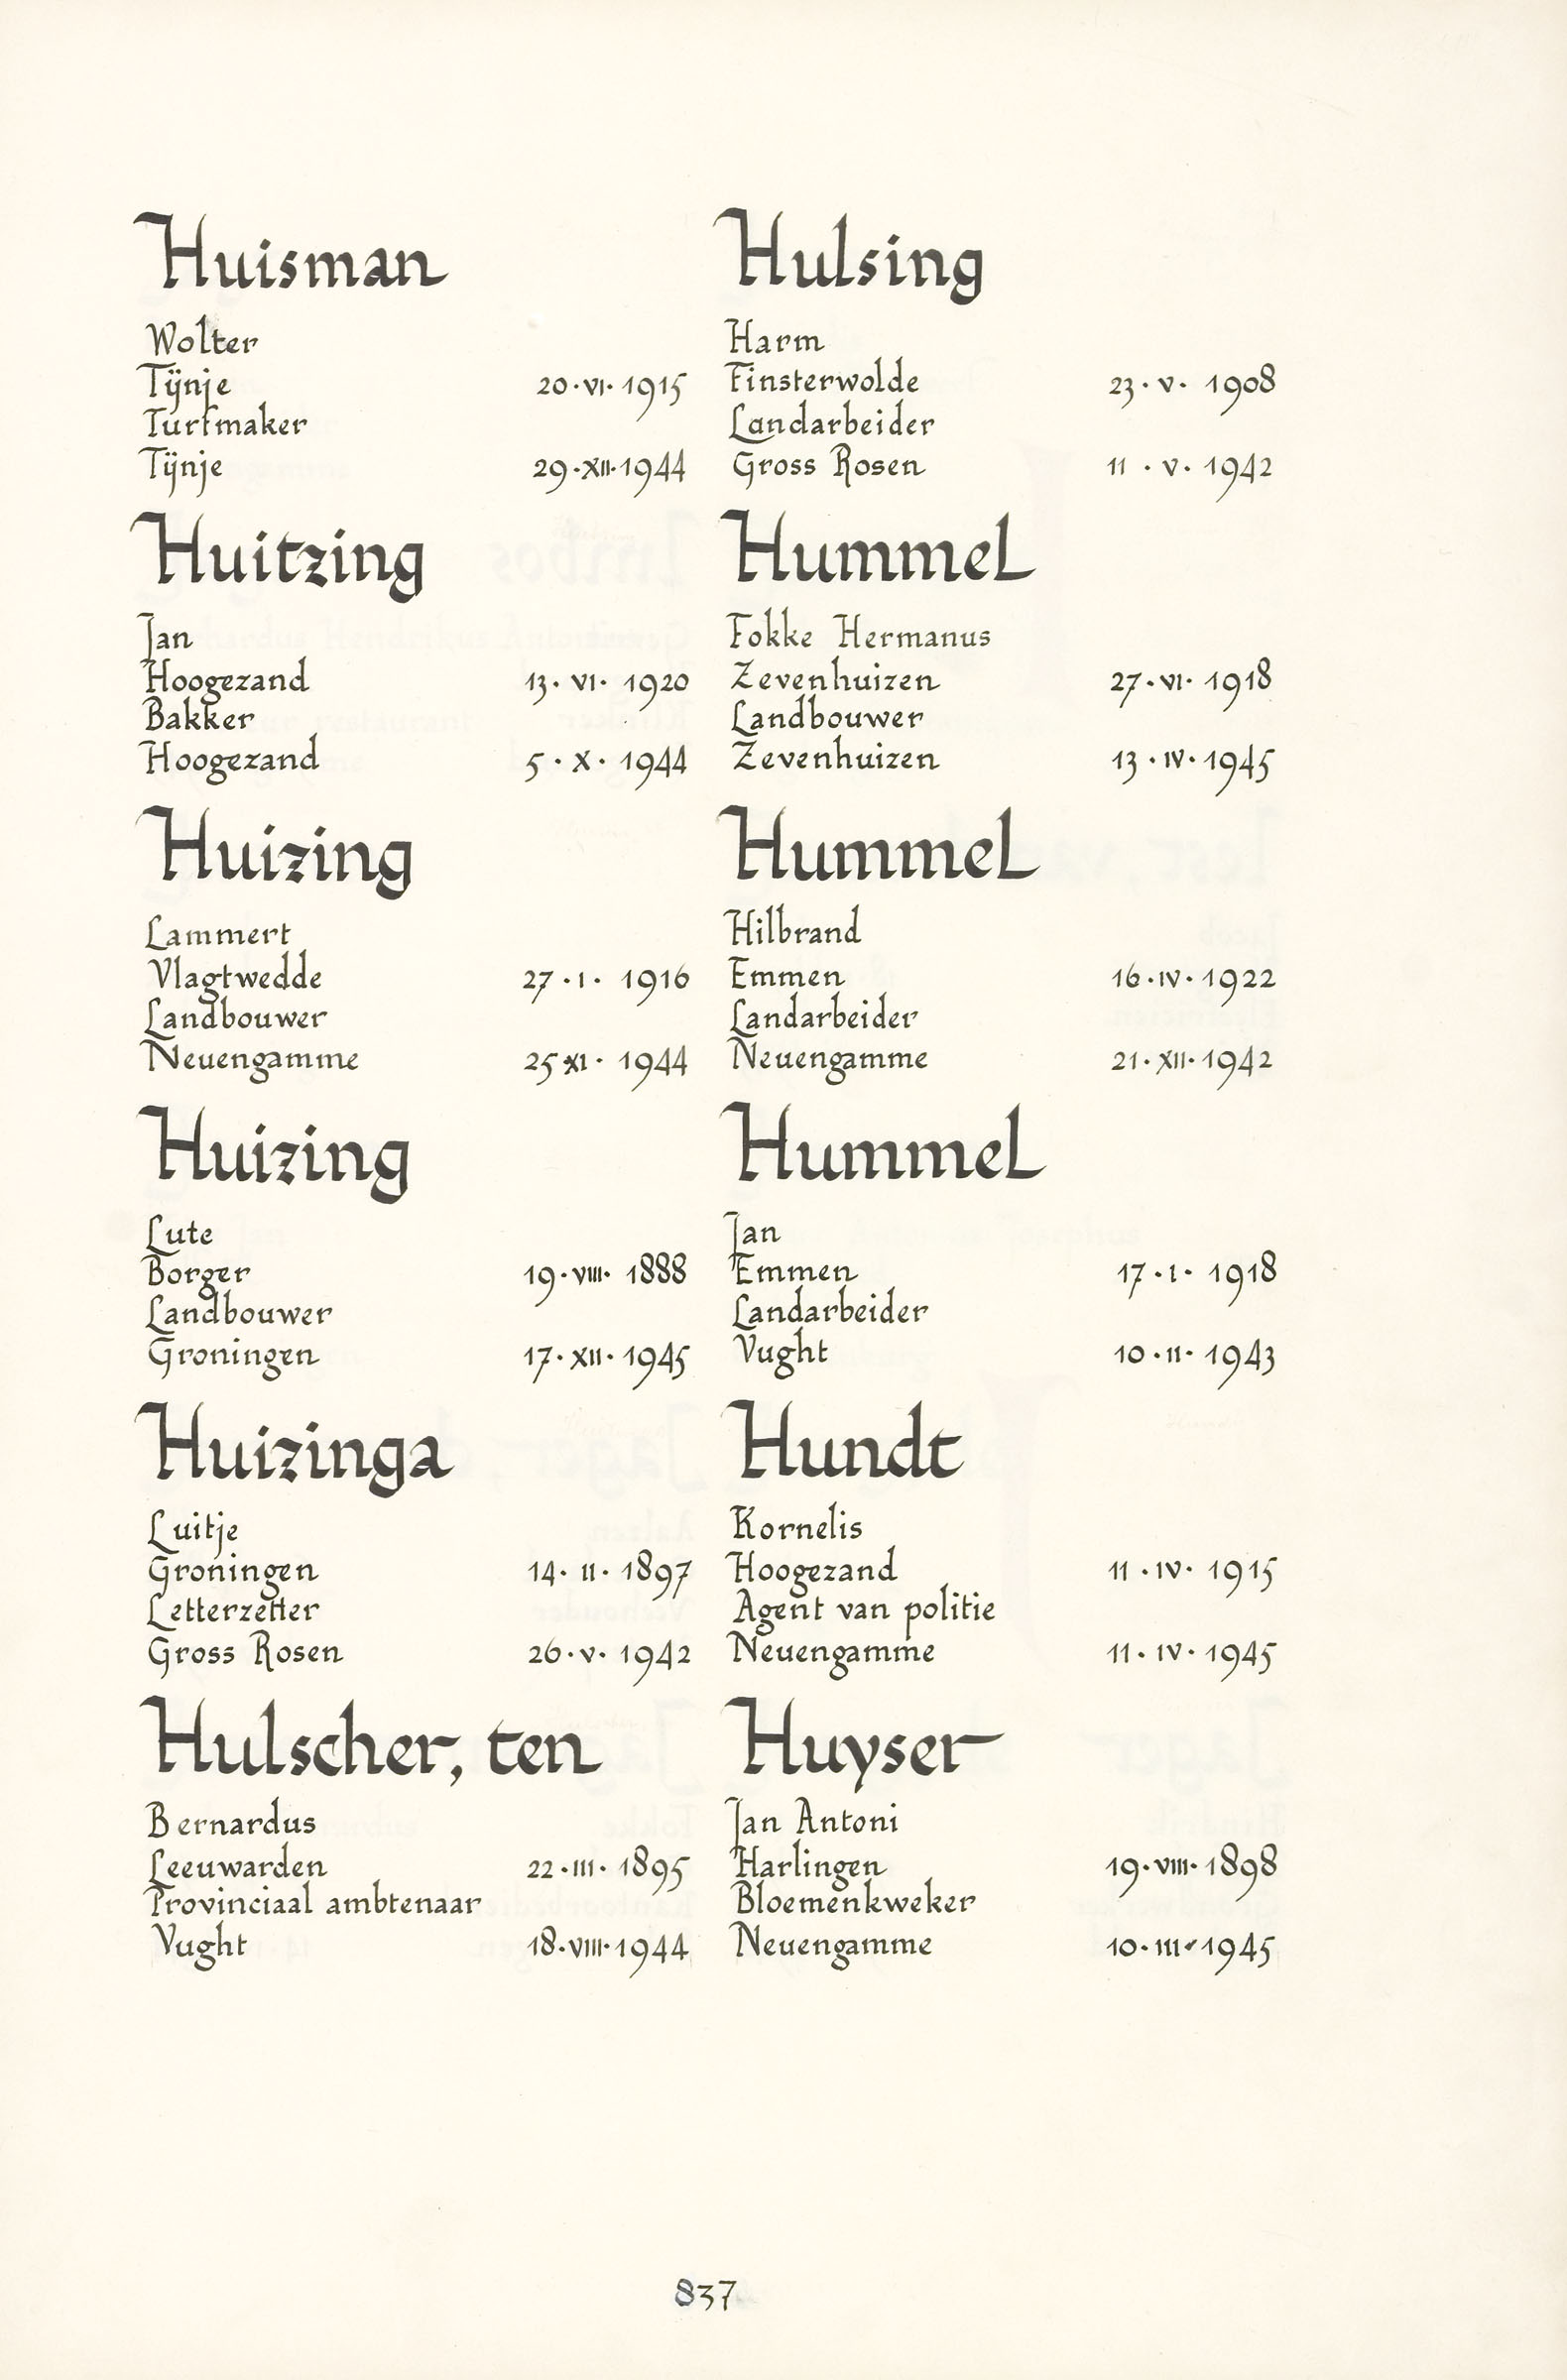 Huisman
Wolter
Tÿnje 20·VI·1915
Turfmaker
Tÿnje 29·XII·1944
Huitzing
Jan
Hoogezand 13·VI·1920
Bakker
Hoogezand 5·X·1944
Huizing
Lammert
Vlagtwedde 27·I·1916
Landbouwer
Neuengamme 25 XI·1944
Huizing
Lute
Borger 19·VIII·1888
Landbouwer
Groningen 17·XII·1945
Huizinga
Luitje
Groningen 14·II·1897
Letterzetter
Gross Rosen 26·V·1942
Hulscher, ten
Bernardus
Leeuwarden 22·III·1895
Provinciaal ambtenaar
Vught 18·VIII·1944
Hulsing
Harm
Finsterwolde 23·V·1908
Landarbeider
Gross Rosen 11·V·1942
Hummel
Fokke Hermanus
Zevenhuizen 27·VI·1918
Landbouwer
Zevenhuizen 13·IV·1945
Hummel
Hilbrand
Emmen 16·IV·1922
Landarbeider
Neuengamme 21·XII·1942
Hummel
Jan
Emmen 17·I·1918
Landarbeider
Vught 10·II·1943
Hundt
Kornelis
Hoogezand 11·IV·1915
Agent van politie
Neuengamme 11·IV·1945
Huyser
Jan Antoni
Harlingen 19·VIII·1898
Bloemenkweker
Neuengamme 10·III·1945
837